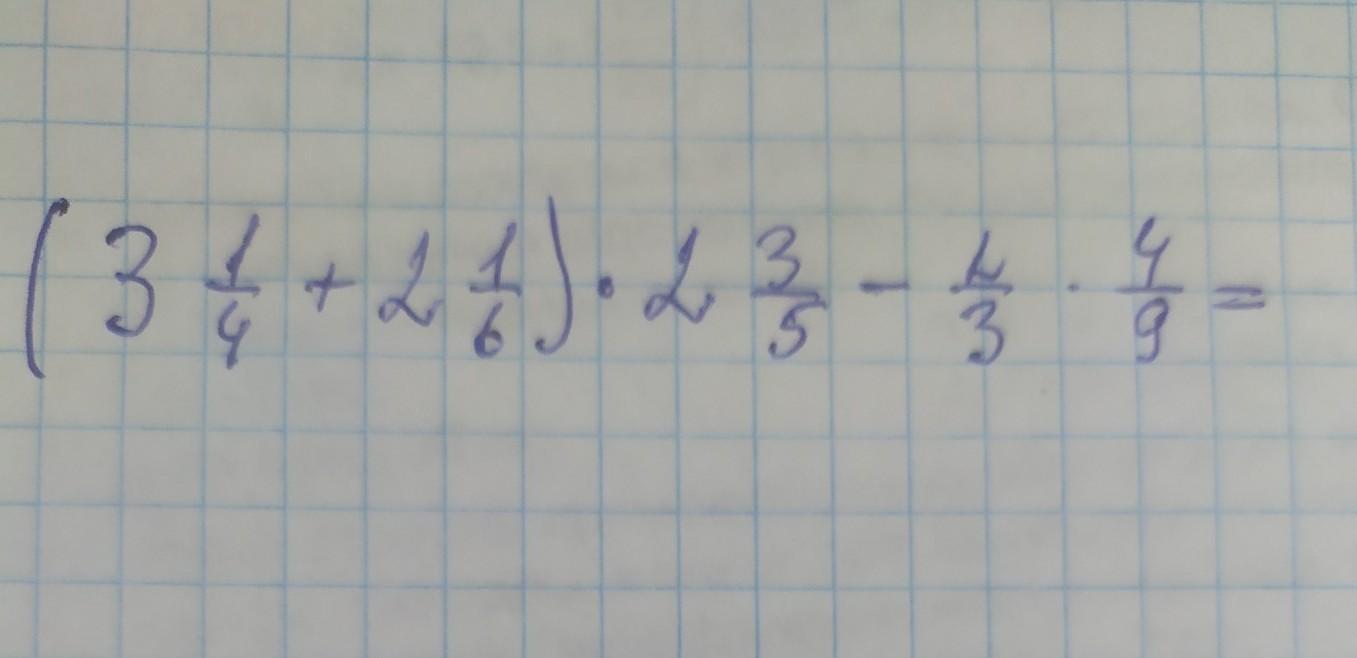 (3 1/4 + 2 1/6) · 2 3/5 - 2/3 · 4/9 =